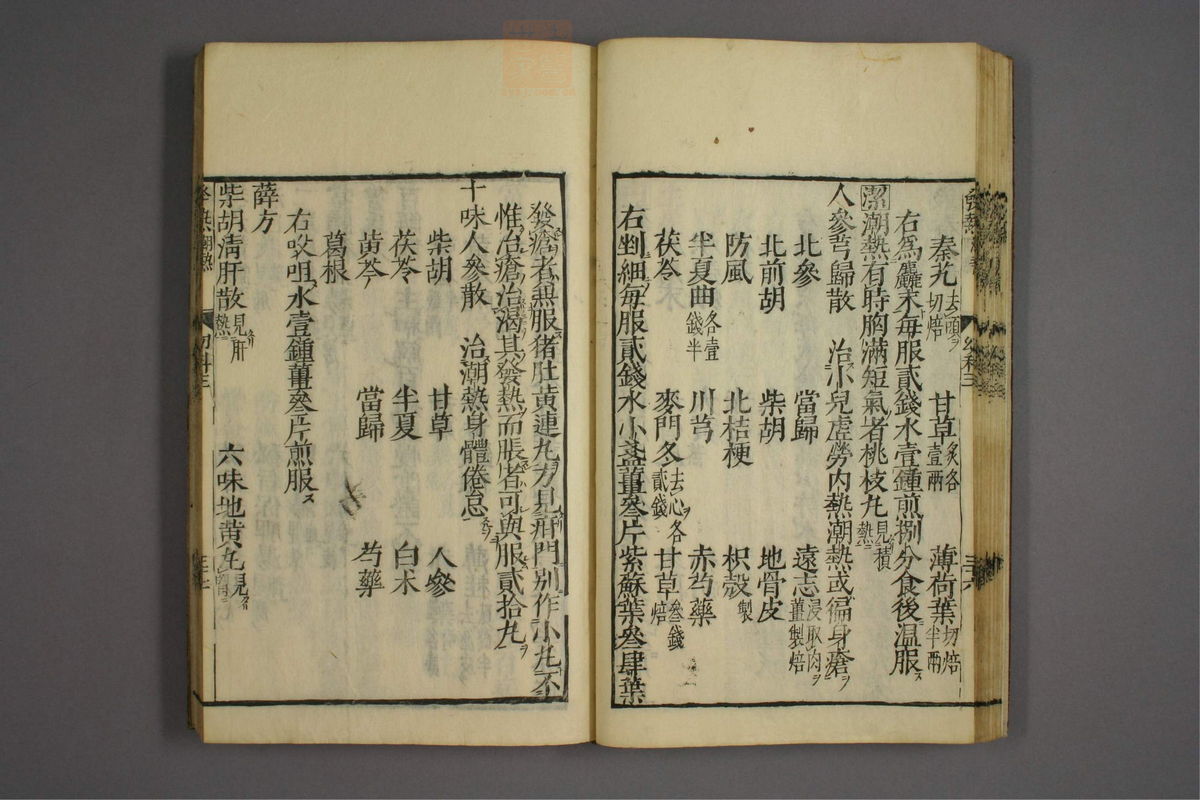 秦艽去頭ヲ切焙　甘草炙各壹兩　薄荷葉切焙半兩
右爲麤末每服貳錢水壹鍾煎捌分食後溫服ス
潔潮熱有時胸滿短氣者桃枝丸見積熱
人參芎歸散　治小兒虛勞内熱潮熱或徧身瘡ヲ
北參　當歸　遠志浸取肉ヲ薑製焙
北前胡　柴胡　地骨皮
防風　北桔梗　枳殼製
半夏曲各壹錢半　川芎　赤芍藥
茯苓　麥門冬去心ヲ各貳錢　甘草參錢焙
右剉細每服貳錢水小盞薑叄片紫蘇葉叄肆葉
發瘡者無服猪肚黃連丸方見疳門別作小丸不
惟治瘡治渴其發熱而脹者可與服貳拾丸
十味人參散　治潮熱身體倦怠
柴胡　甘草　人參
茯苓　半夏　白朮
黃芩　當歸　芍藥
葛根
右㕮咀水壹鍾薑叄片煎服ス
薛方
柴胡淸肝散見肝熱　六味地黃丸見
幼科三
三十六